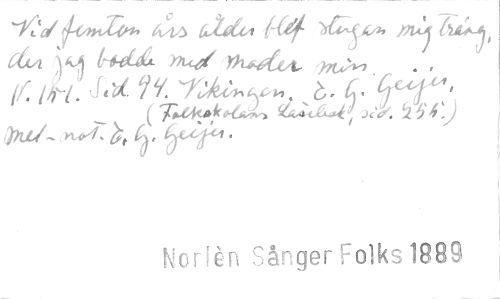 Vid femton års ålder blef stugan mig trång,
der jag bodde med moder min
N. 151. Sid. 94. Vikingen. E. G. Geijer,
(Folkskolans Läsebok, sid. 255.)
Mel-not. E. G. Geijer.
Norlèn Sånger Folks 1889